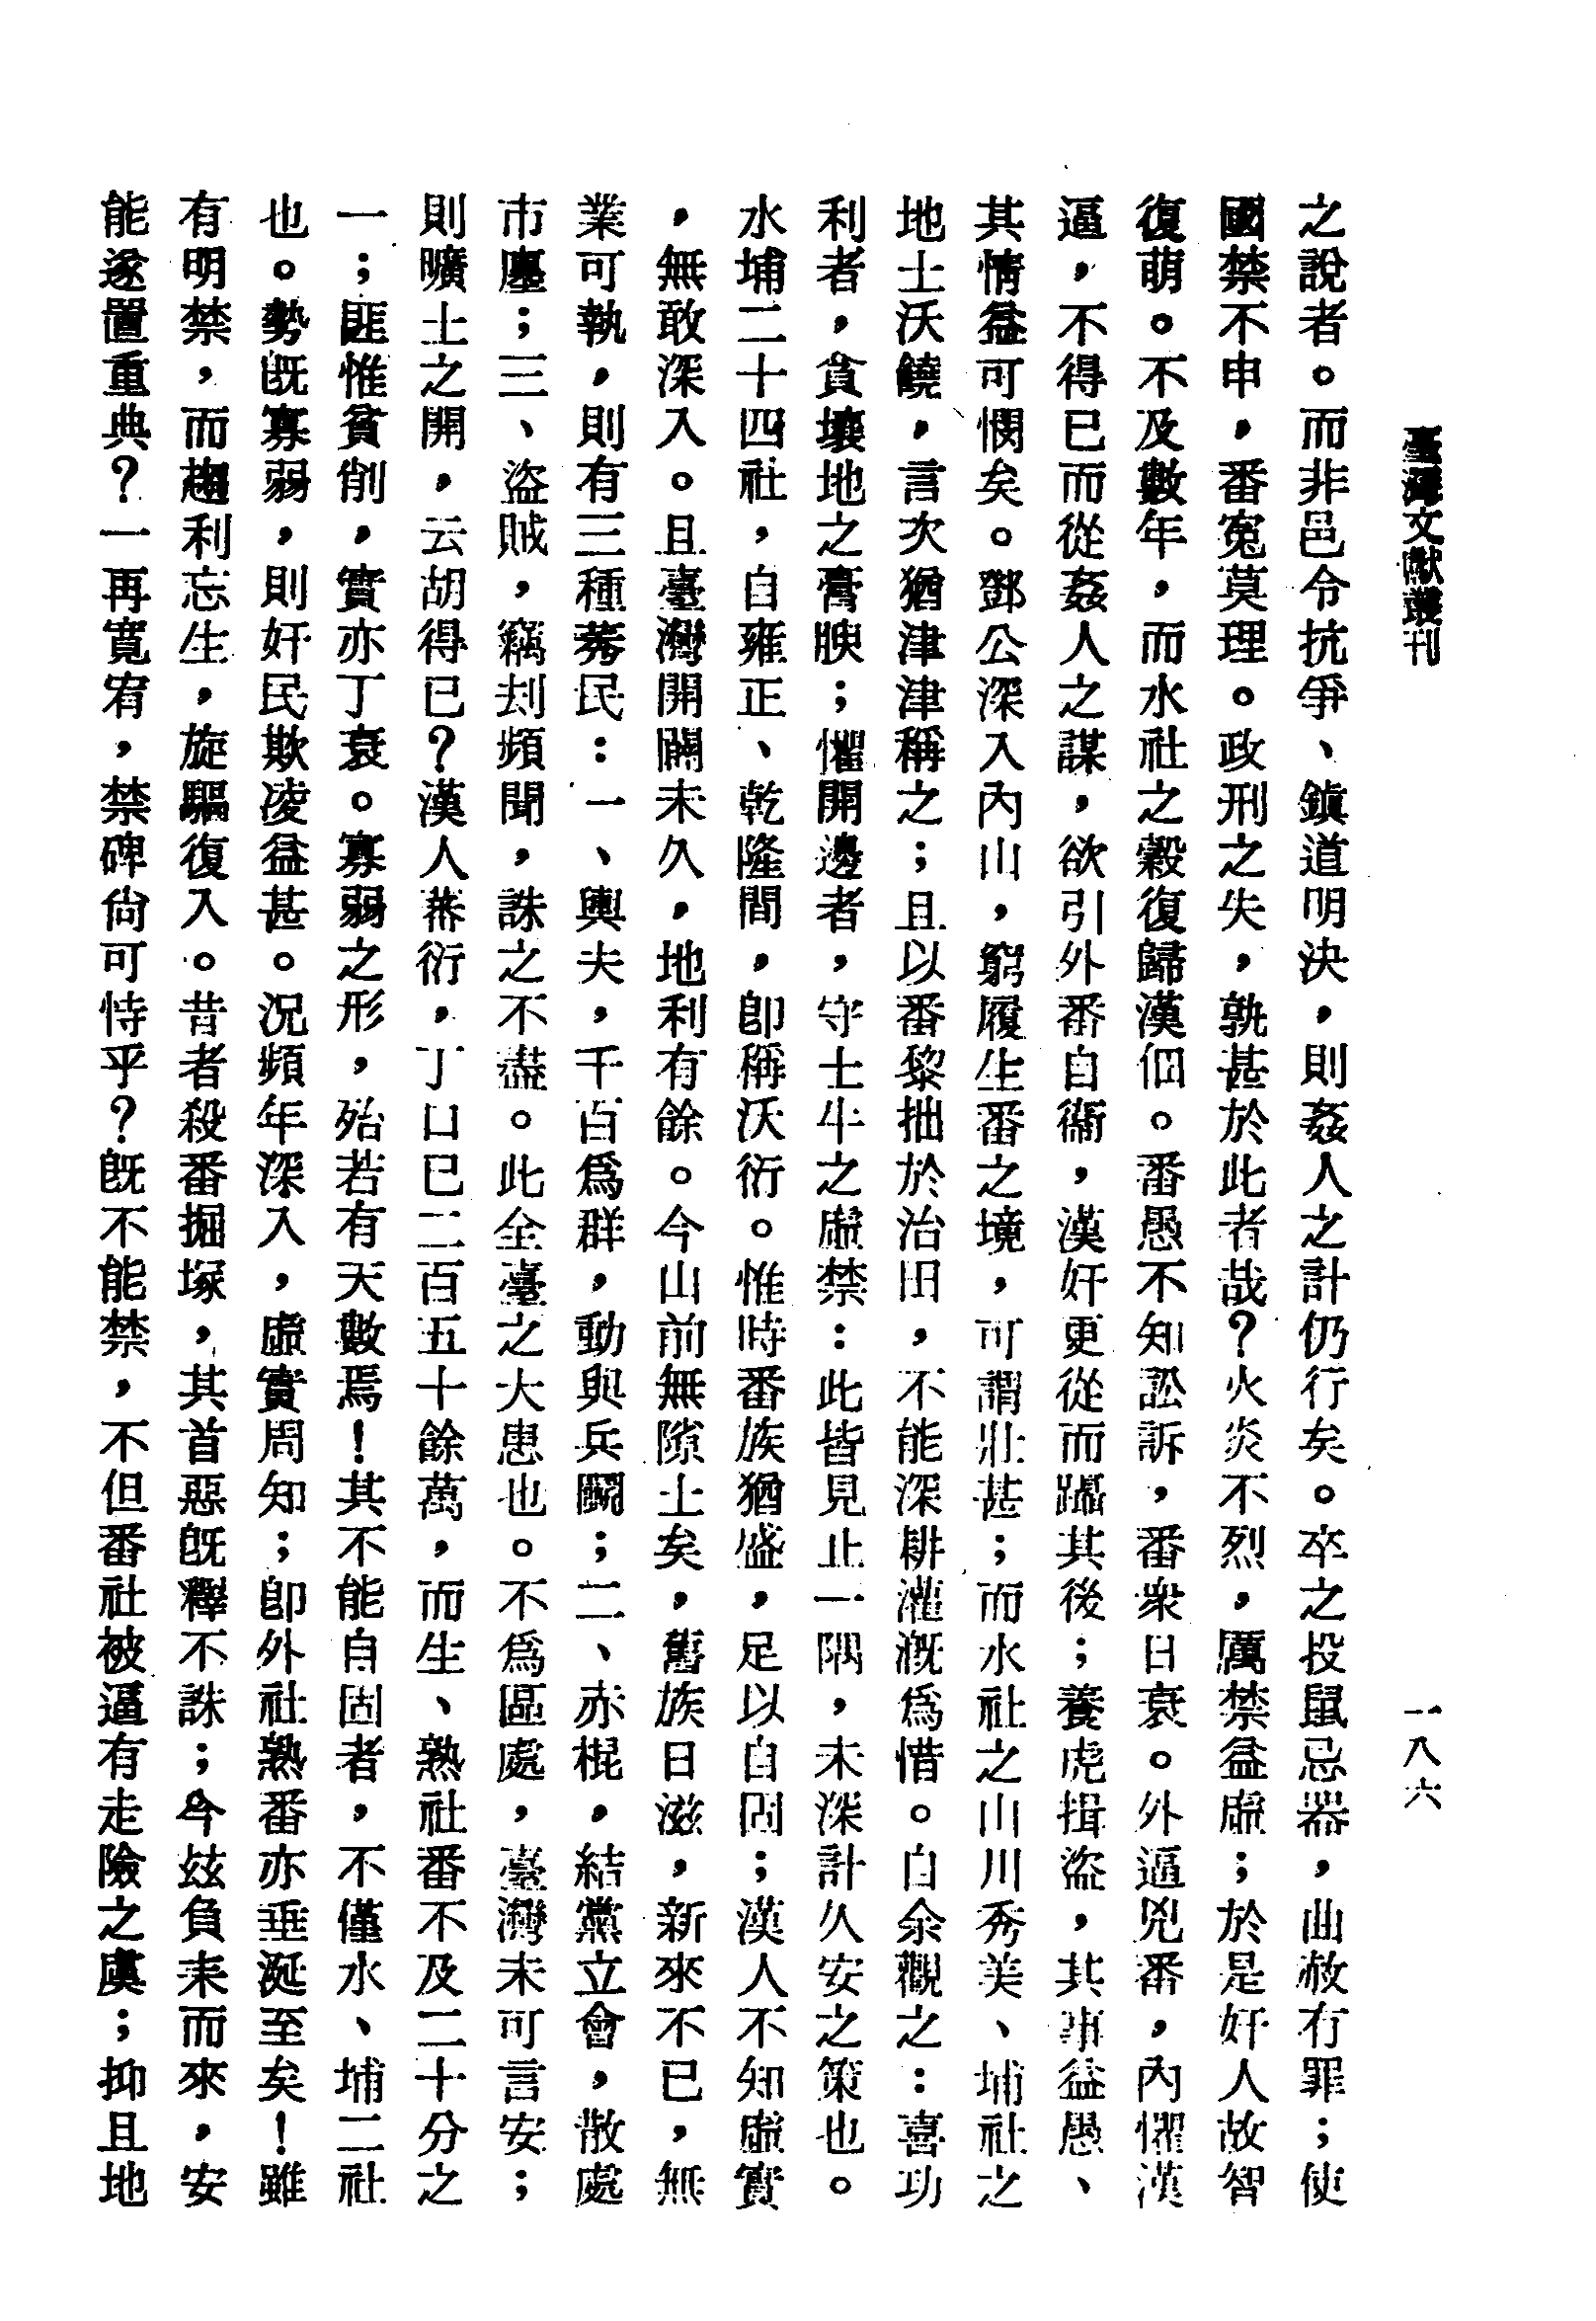 臺灣文獻叢刊
一八六
之說者。而非邑令抗爭、鎮道明決，則姦人之計仍行矣。卒之投鼠忌器，曲赦有罪；使
國禁不申，番冤莫理。政刑之失，孰甚於此者哉？火炎不烈，厲禁益虛；於是奸人故智
復萌。不及數年，而水社之穀復歸漢佃。番愚不知訟訴，番衆日衰。外逼兇番，內懼漢
逼，不得已而從姦人之謀，欲引外番自衞，漢奸更從而躡其後；養虎揖盜，其事益愚、
其情益可憫矣。鄧公深入內山，窮履生番之境，可謂壯甚；而水社之山川秀美、埔社之
地土沃饒，言次猶津津稱之；且以番黎拙於治田，不能深耕灌溉爲惜。自余觀之：喜功
利者，貪壤地之膏腴；懼開邊者，守土牛之虛禁：此皆見止一隅，未深計久安之策也。
水埔二十四社，自雍正、乾隆間，卽稱沃衍。惟時番族猶盛，足以自固；漢人不知虛實
，無敢深入。且臺灣開闢未久，地利有餘。今山前無隙土矣，舊族日滋，新來不已，無
業可執，則有三種莠民：一、輿夫，千百爲群，動與兵鬭；二、赤棍，結黨立會，散處
市廛；三、盜賊，竊刦頻聞，誅之不盡。此全臺之大患也。不爲區處，臺灣未可言安；
則曠土之開，云胡得已？漢人蕃衍，丁口已二百五十餘萬，而生、熟社番不及二十分之
一；匪惟貧削，實亦丁衰。寡弱之形，殆若有天數焉！其不能自固者，不僅水、埔二社
也。勢旣寡弱，則奸民欺凌益甚。況頻年深入，虛實周知；卽外社熟番亦垂涎至矣！雖
有明禁，而趨利忘生，旋驅復入。昔者殺番掘塚，其首惡旣釋不誅；今玆負耒而來，安
能遂置重典？一再寬宥，禁碑尙可恃乎？旣不能禁，不但番社被逼有走險之虞；抑且地